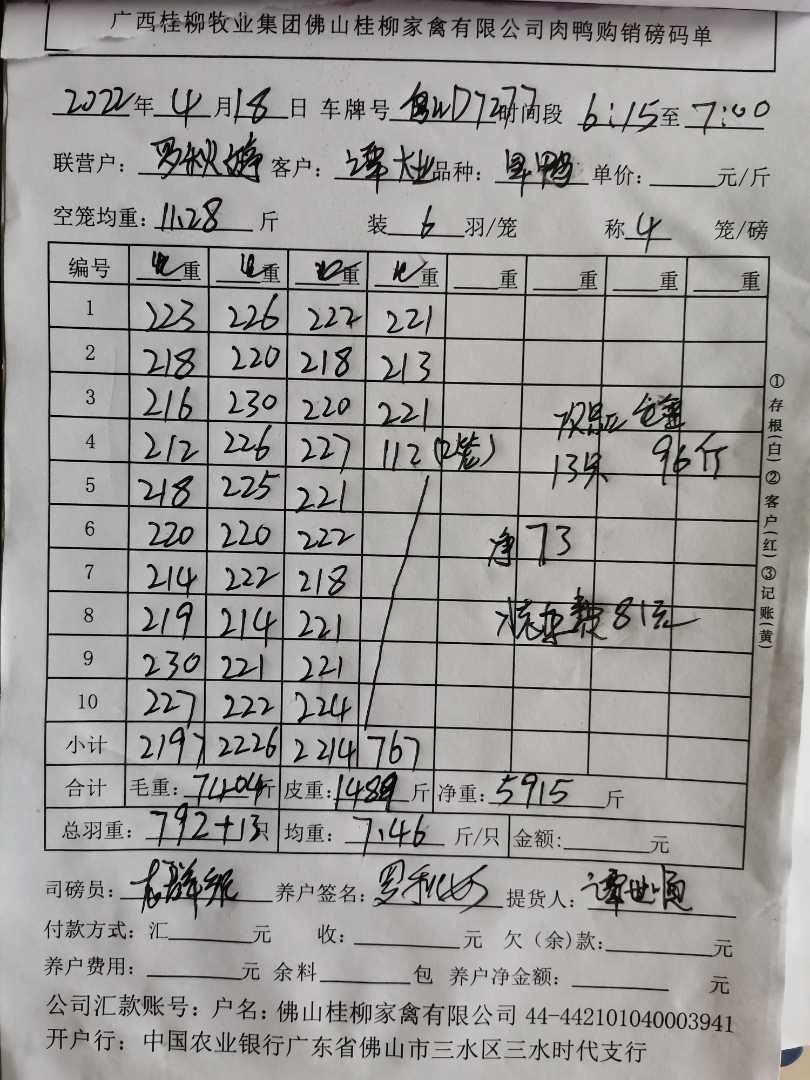 广西桂柳牧业集团佛山桂柳家禽有限公司肉鸭购销磅码单
2022年 4月18日 车牌号 D7277 时间段 6:15至 7:00
联营户: 罗秋婷 客户: 谭大业 品种: 果鸭 单价: 元/斤
空笼均重: 11.28 斤 装 6 羽/笼 称 4 笼/磅
编号 重 重 重 重 重 重 重 重
1 223 226 222 221
2 218 220 218 213
3 216 230 220 221 次品 毛重
4 212 226 227 112 (2笼) 13只 96斤
5 218 225 221
6 220 220 222 净 73
7 214 222 218
8 219 214 221 费 81元
9 230 221 221
10 227 222 224
小计 2197 2226 2214 767
合计 毛重: 7404斤 皮重: 1489斤 净重: 5915 斤
总羽重: 792+13只 均重: 7.46 斤/只 金额: 元
司磅员: 养户签名: 提货人: 谭世顺
付款方式: 汇 元 收: 元 欠(余)款: 元
养户费用: 元 余料 包 养户净金额: 元
公司汇款账号: 户名: 佛山桂柳家禽有限公司 44-442101040003941
开户行: 中国农业银行广东省佛山市三水区三水时代支行
①存根(白)②客户(红)③记账(黄)